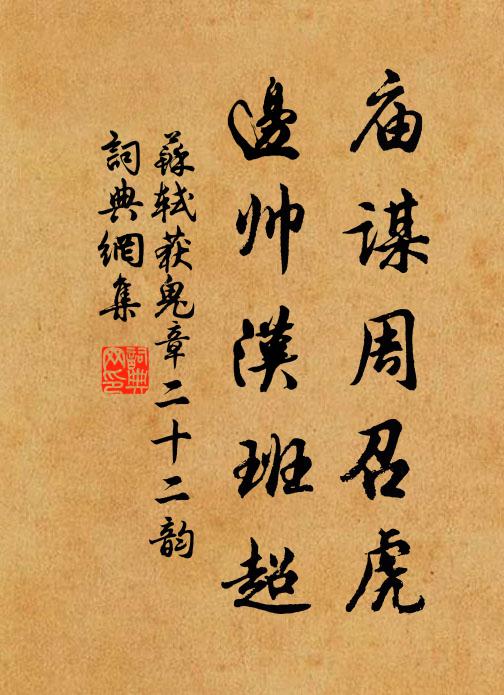 庙谋周召虎
邊帅漢班超
蘇轼获鬼章二十二韵
詞典網集
詞典网印